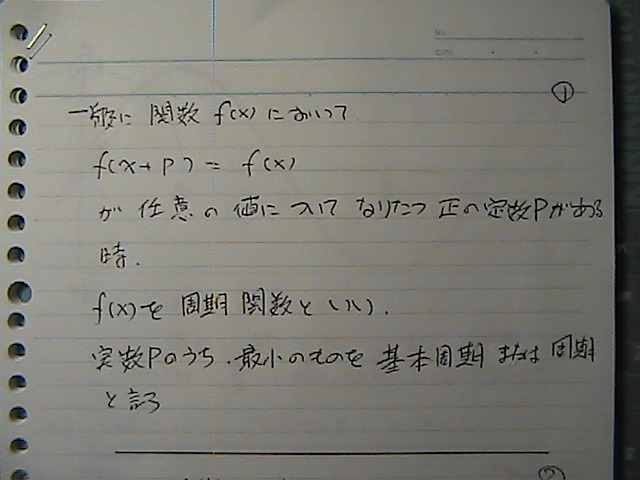 NO.
DATE
①
一般に 関数 f(x) において
f(x+P) = f(x)
が 任意の値について なりたつ 正の定数Pがある
時.
f(x)を 周期関数といい.
定数Pのうち.最小のものを 基本周期 または 周期
と言う
②